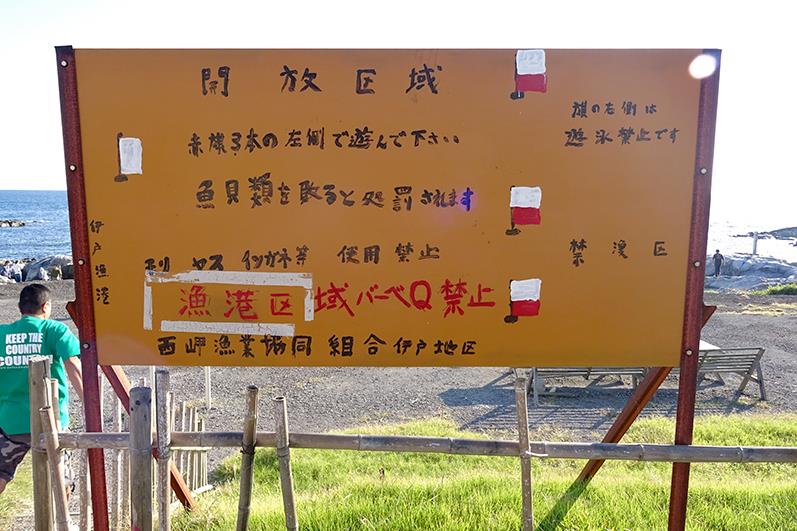 開放区域
赤旗3本の左側で遊んで下さい
魚貝類を取ると処罰されます
モリ ヤス イソガネ等 使用禁止
漁港区域バーベQ禁止
西岬漁業協同組合伊戸地区
旗の左側は
遊泳禁止です
禁漁区
伊戸漁港
KEEP THE
COUNTRY
COUNTRY